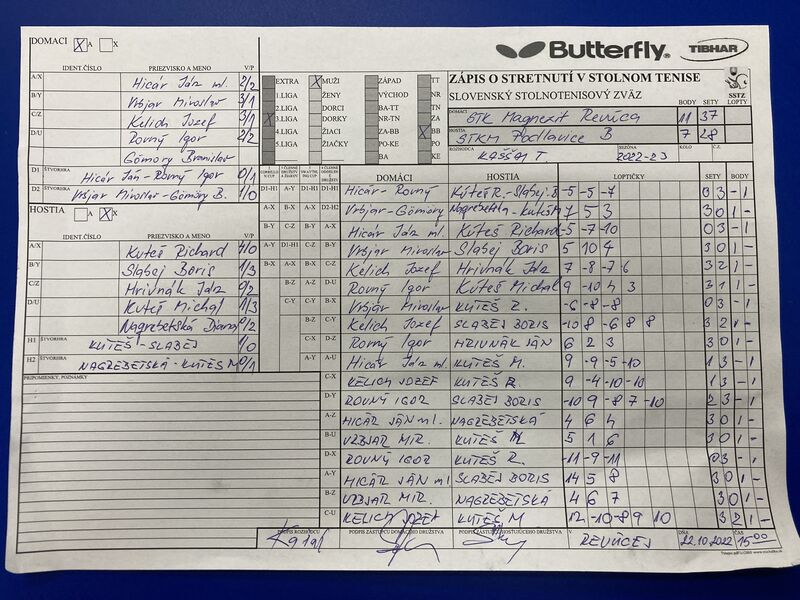 DOMACI X A X
Butterfly. TIBHAR
IDENT.ČÍSLO PRIEZVISKO A MENO V/P
A/X Hicár Ján ml. 2/2
B/Y Vrbjar Miroslav 3/1
C/Z Kelich Jozef 3/1
D/U Rovný Igor 2/2
Gömöry Branislav
D1 ŠTVORHRA Hicár Ján - Rovný Igor 0/1
D2 ŠTVORHRA Vrbjar Miroslav - Gömöry B. 1/0
HOSTIA A X
IDENT.ČÍSLO PRIEZVISKO A MENO V/P
A/X Kuteš Richard 4/0
B/Y Slabej Boris 1/3
C/Z Hrivnák Ján 0/2
D/U Kuteš Michal 1/3
Nagrebetská Diana 0/2
H1 ŠTVORHRA KUTEŠ - SLABEJ 1/0
H2 ŠTVORHRA NAGREBETSKÁ - KUTEŠ M 0/1
PRIPOMIENKY, POZNÁMKY
EXTRA X MUŽI ZÁPAD TT
1.LIGA ŽENY VÝCHOD NR
2.LIGA DORCI BA-TT TN
3.LIGA DORKY NR-TN ZA
4.LIGA ŽIACI ZA-BB X BB
5.LIGA ŽIAČKY PO-KE PO
BA KE
ZÁPIS O STRETNUTÍ V STOLNOM TENISE
SLOVENSKÝ STOLNOTENISOVÝ ZVÄZ SSTZ
BODY SETY LOPTY
DOMÁCI STK Magnezit Revúca 11 37
HOSTIA STKM Podlavice B 7 28
ROZHODCA KAŠŠAI T. SEZÓNA 2022-23 KOLO Č.Z.
DOMÁCI HOSTIA LOPTIČKY SETY BODY
D1-H1 A-Y D1-H1 D1-H1 Hicár - Rovný Kuteš R. - Slabej B -5 -5 -7 0 3 - 1
A-X B-X A-X D2-H2 Vrbjar - Gömöry Nagrebetská - Kuteš M 7 5 3 3 0 1 -
B-Y C-Z B-Y A-X Hicár Ján ml. Kuteš Richard -5 -7 -10 0 3 - 1
A-Y D1-H1 C-Z B-Y Vrbjar Miroslav Slabej Boris 5 10 4 3 0 1 -
B-X A-X B-X C-Z Kelich Jozef Hrivnák Ján 7 -8 -7 6 3 2 1 -
B-Z A-Z D-U Rovný Igor Kuteš Michal 9 -10 4 3 3 1 1 -
C-Y C-Y B-X Vrbjar Miroslav KUTEŠ R. -6 -8 -8 0 3 - 1
B-Z C-Y Kelich Jozef SLABEJ BORIS -10 8 -6 8 8 3 2 1 -
C-X D-Z Rovný Igor HRIVNÁK JÁN 6 2 3 3 0 1 -
A-Y A-U Hicár Ján ml. KUTEŠ M. 9 -9 -5 -10 1 3 - 1
C-X KELICH JOZEF KUTEŠ R. 9 -4 -10 -10 1 3 - 1
D-Y ROVNÝ IGOR SLABEJ BORIS -10 9 -8 7 -10 2 3 - 1
A-Z HICÁR JÁN ml. NAGREBETSKÁ 4 6 4 3 0 1 -
B-U VRBJAR MIR. KUTEŠ M 5 1 6 3 0 1 -
D-X ROVNÝ IGOR KUTEŠ R. -11 -9 -11 0 3 - 1
A-Y HICÁR JÁN ml SLABEJ BORIS 14 5 8 3 0 1 -
B-Z VRBJAR MIR. NAGREBETSKÁ 4 6 7 3 0 1 -
C-U KELICH JOZEF KUTEŠ M 12 -10 -8 9 10 3 2 1 -
PODPIS ROZHODCU PODPIS ZÁSTUPCU DOMÁCEHO DRUŽSTVA PODPIS ZÁSTUPCU HOSŤUJÚCEHO DRUŽSTVA V REVÚCEJ DŇA 22.10.2022 ČAS 15:00